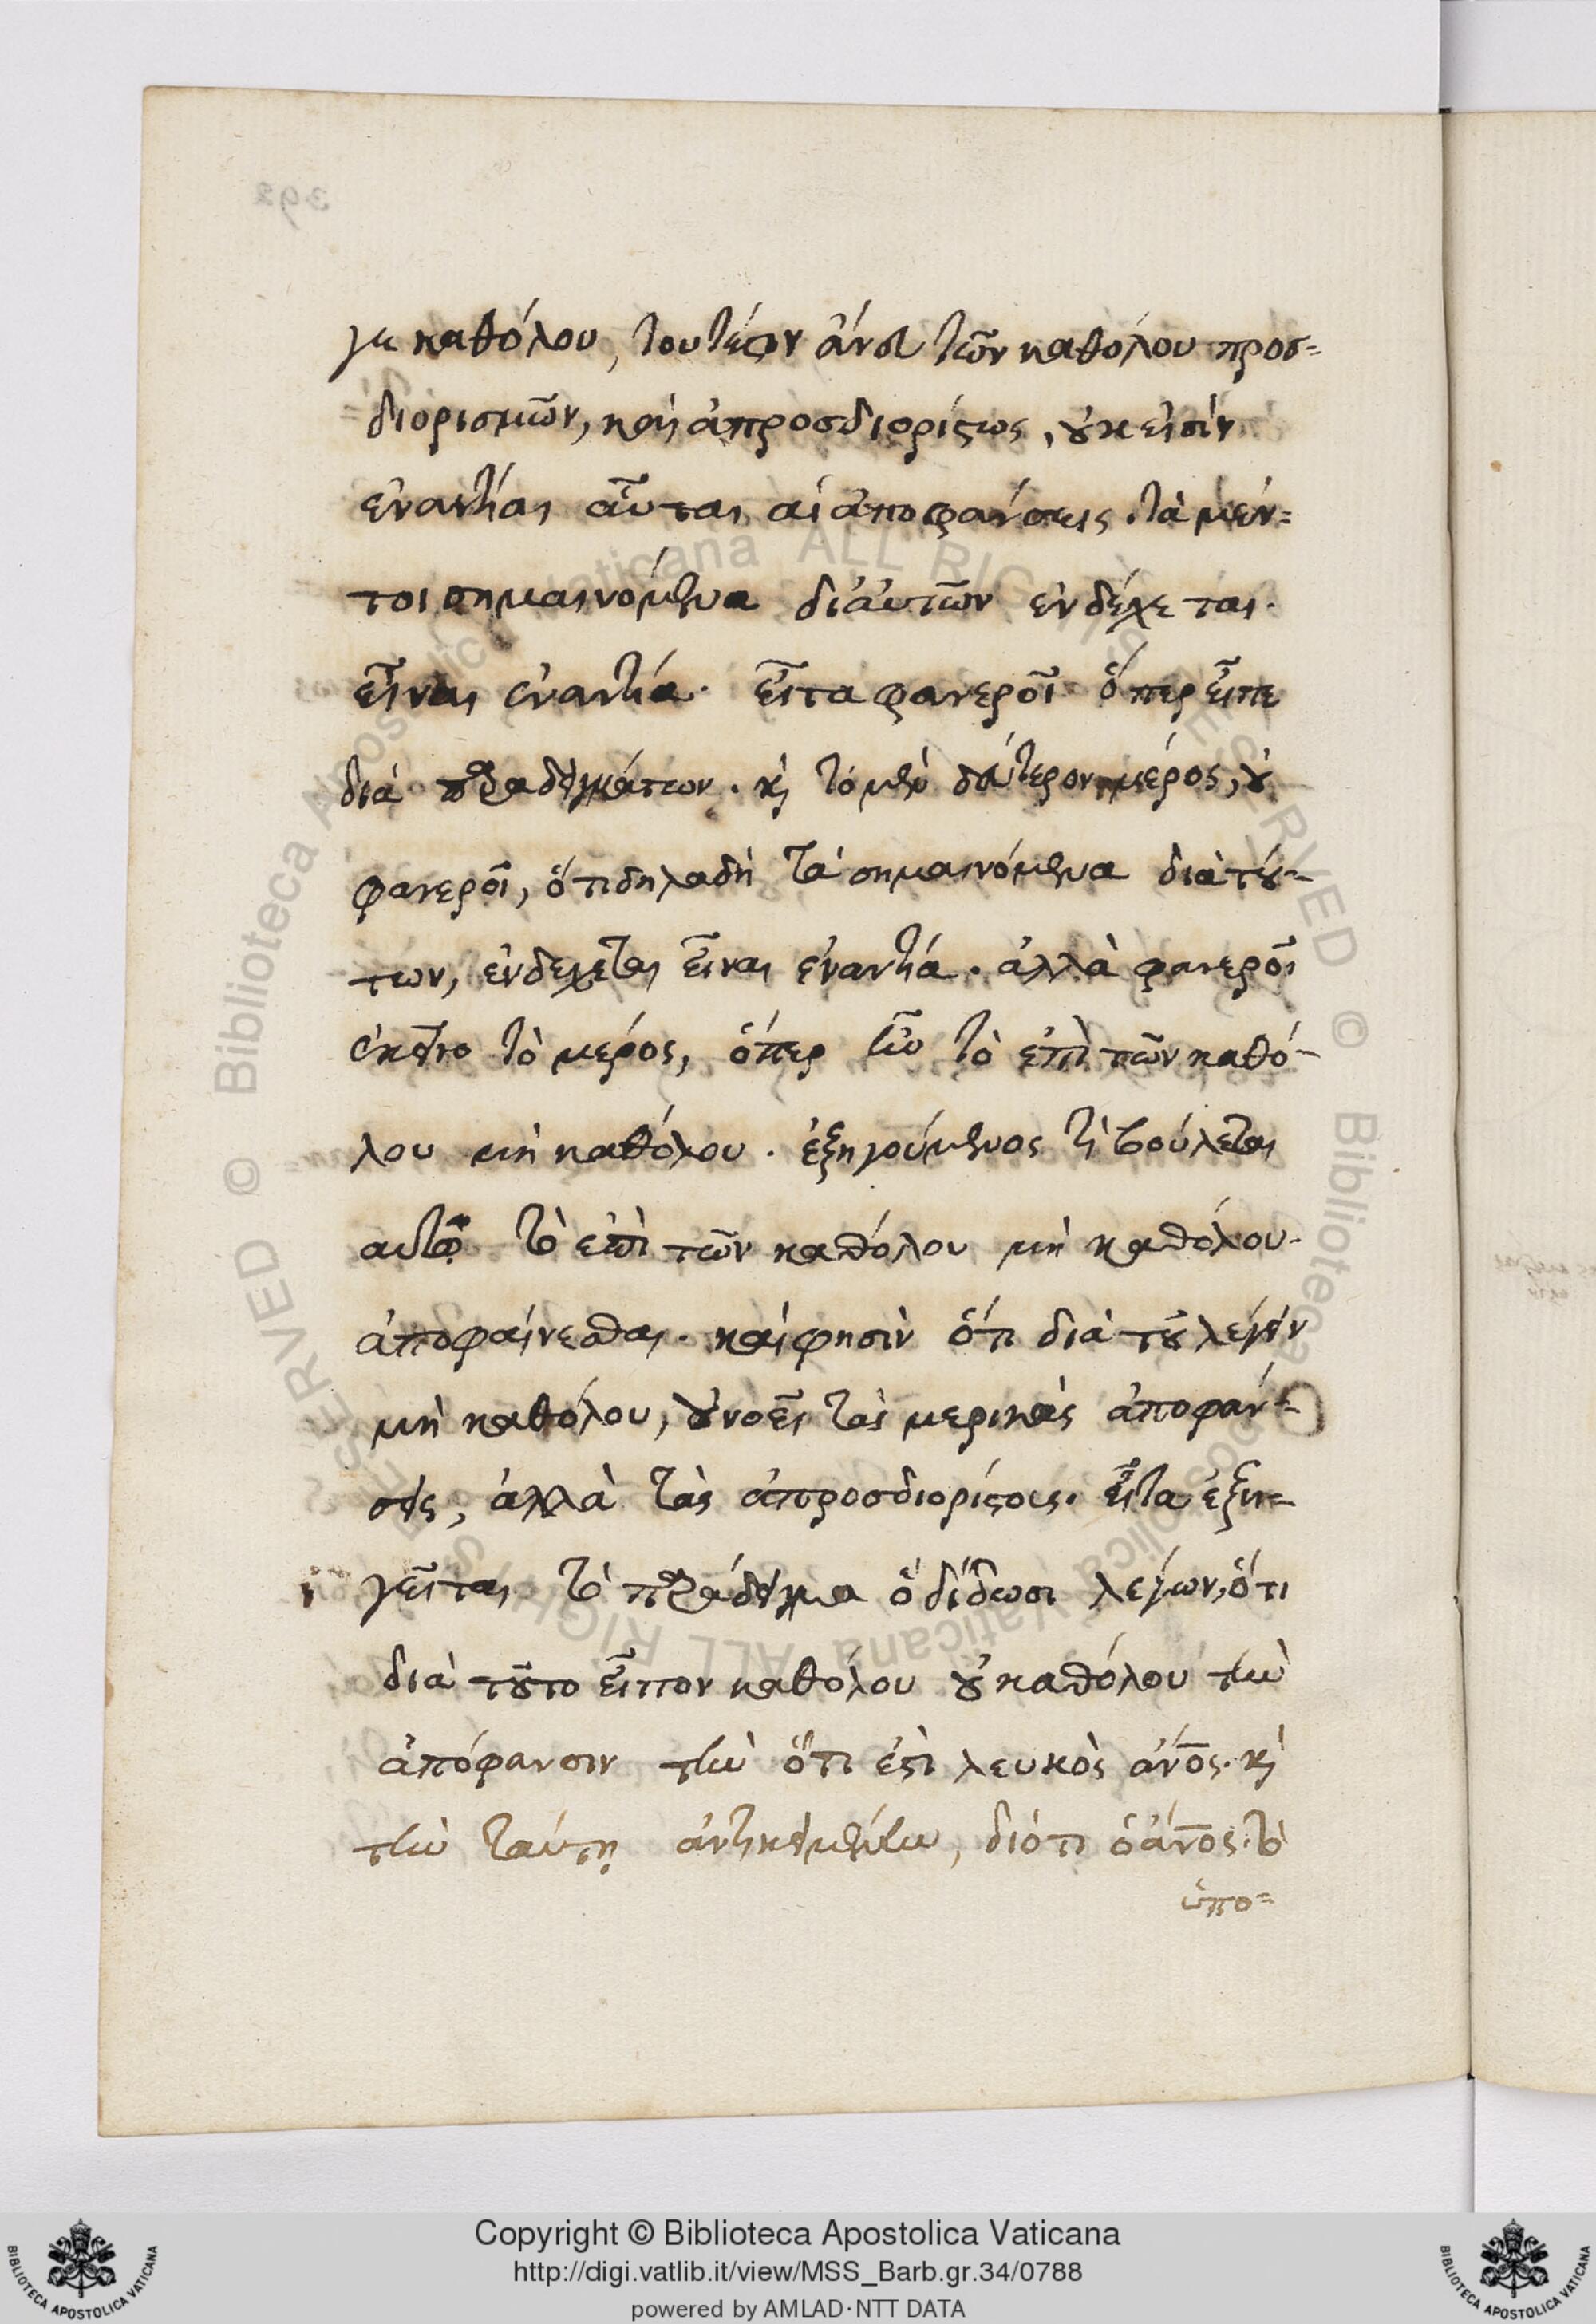 γε καθόλου, τουτέστιν ἄνευ τῶν καθόλου προσ=
διορισμῶν, καὶ ἀπροσδιορίστως, οὐκ εἰσὶν
ἐναντίαι αὗται αἱ ἀποφάνσεις. τὰ μέν=
τοι σημαινόμενα δι' αὐτῶν ἐνδέχεται.
εἶναι ἐναντία. εἶτα φανεροῖ ὅπερ εἶπε
διὰ παραδειγμάτων. καὶ τὸ μὲν δεύτερον μέρος, οὐ
φανεροῖ, ὅτι δηλαδὴ τὰ σημαινόμενα διὰ τού-
των, ἐνδέχεται εἶναι ἐναντία. ἀλλὰ φανεροῖ
ἐκεῖνο τὸ μέρος, ὅπερ ἦν τὸ ἐπὶ τῶν καθό-
λου μὴ καθόλου. ἐξηγούμενος τί βούλεται
αὐτῷ τὸ ἐπὶ τῶν καθόλου μὴ καθόλου.
ἀποφαίνεσθαι. καί φησιν ὅτι διὰ τοῦ λέγειν
μὴ καθόλου, οὐ νοεῖ τὰς μερικὰς ἀποφάν=
σεις, ἀλλὰ τὰς ἀπροσδιορίστους. εἶτα ἐξη=
γεῖται τὸ παράδειγμα ὃ δίδωσι λέγων, ὅτι
διὰ τοῦτο εἶπον καθόλου οὐ καθόλου τὴν
ἀπόφανσιν τὴν ὅτι ἐστὶ λευκὸς ἄνος. καὶ
τὴν ταύτῃ ἀντικειμένην, διότι ὁ ἄνος. τὸ
ὑπο=
Copyright © Biblioteca Apostolica Vaticana
http://digi.vatlib.it/view/MSS_Barb.gr.34/0788
powered by AMLAD·NTT DATA